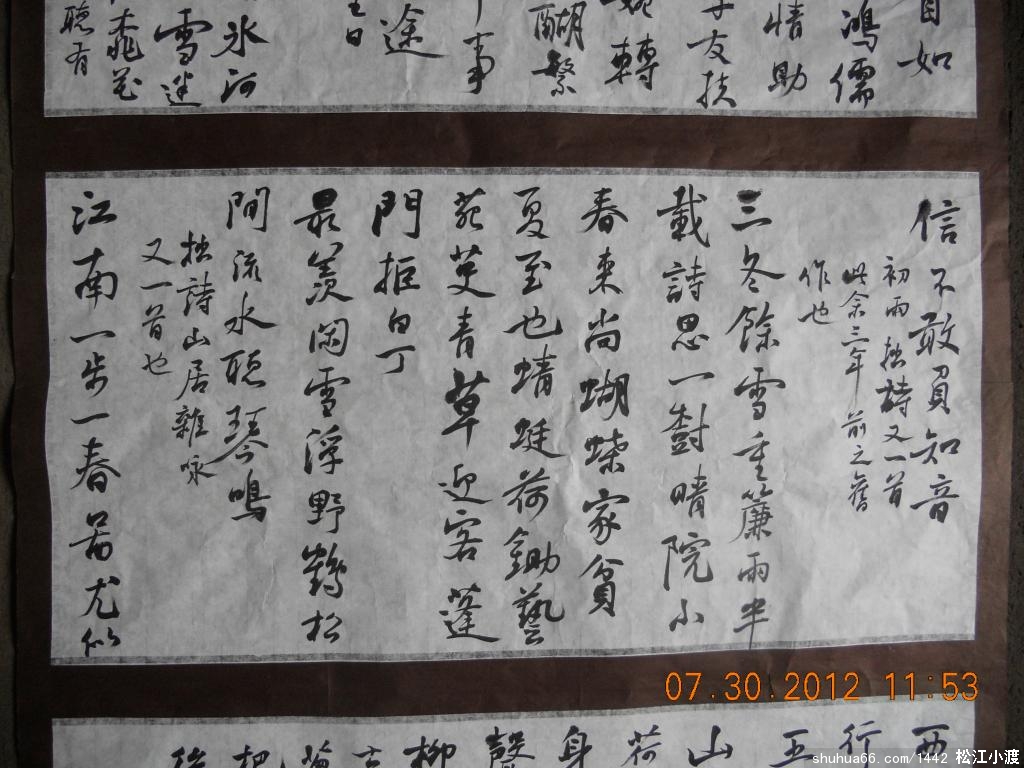 自如
鴻儒
情助
友扶
轉
醐繫
事
途
日
冰河
雪迷
聽有
信不敢負知音
初雨拙詩又一首
此余三年前之舊
作也
三冬餘雪重簾雨半
載詩思一樹晴院小
春來尚蝴蝶家貧
夏至也蜻蜓荷鋤藝
苑芰青草迎客蓬
門拒白丁
最羨閑雪浮野鶴松
間流水聽琴鳴
拙詩山居雜咏
又一首也
江南一步一春尤似
西
行
五
山
荷
身
柳
把
07.30.2012 11:53
shuhua66.com/1442 松江小渡